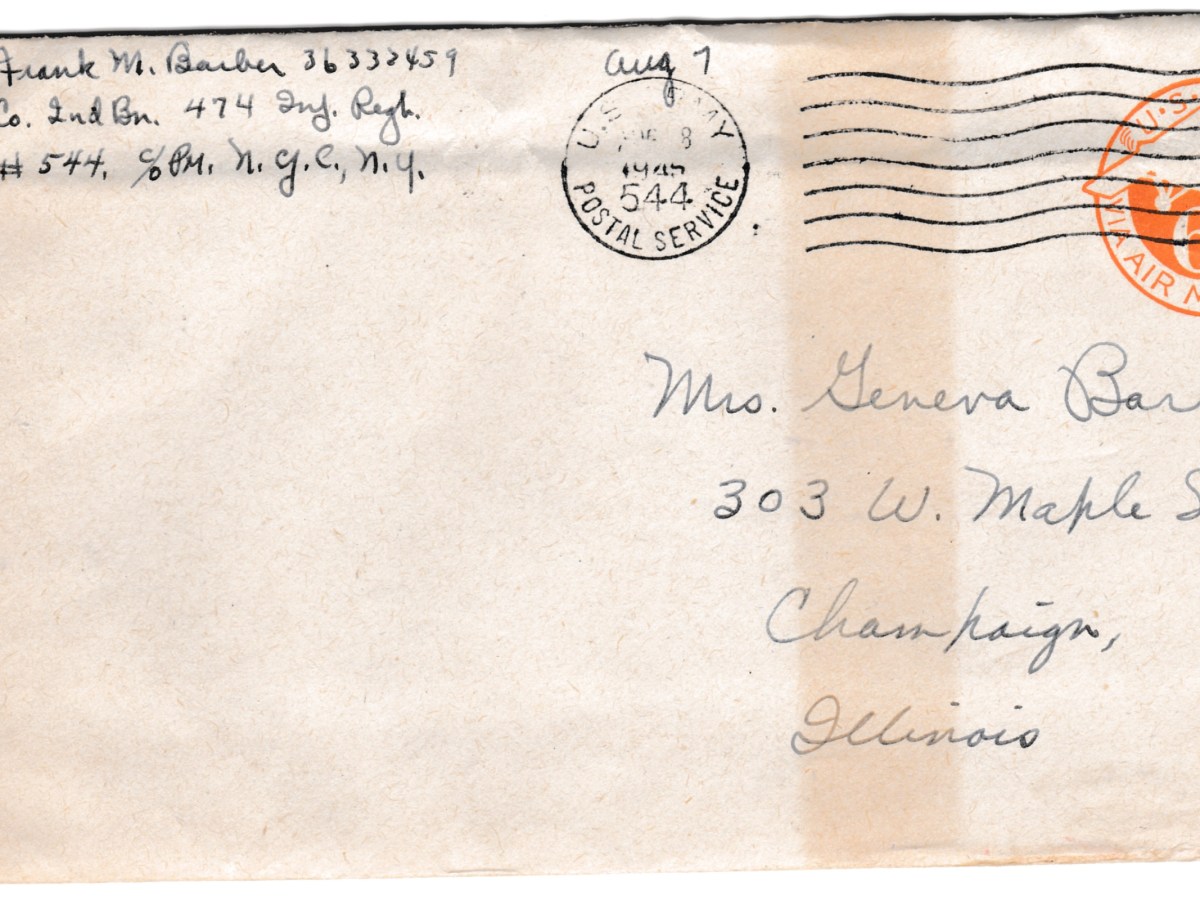 Frank M. Barber 36332459
Co. 2nd Bn. 474 Inf. Regt.
# 544. c/o PM. N.Y.C., N.Y.
Aug 7
U.S. ARMY
8
1945
544
POSTAL SERVICE
U.S.
6
VIA AIR M
Mrs. Geneva Bar
303 W. Maple S
Champaign,
Illinois